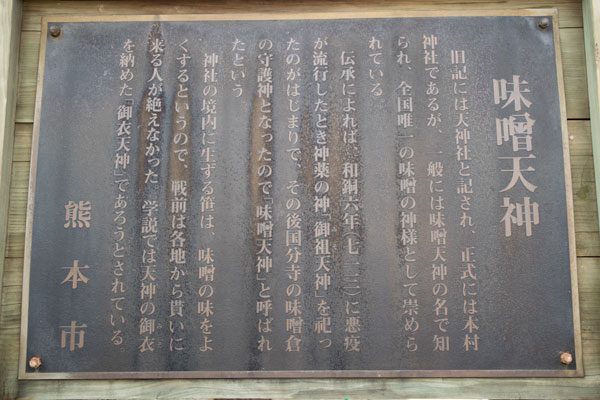 味噌天神
旧記には天神社と記され、正式には本村
神社であるが、一般には味噌天神の名で知
られ、全国唯一の味噌の神様として崇めら
れている
伝承によれば、和銅六年(七一三)に悪疫
が流行したとき神薬の神「御祖天神」を祀っ
たのがはじまりで、その後国分寺の味噌倉
の守護神となったので「味噌天神」と呼ばれ
たという
神社の境内に生ずる笹は、味噌の味をよ
くするというので、戦前は各地から貰いに
来る人が絶えなかった 学説では天神の御衣
を納めた「御衣天神」であろうとされている。
熊本市